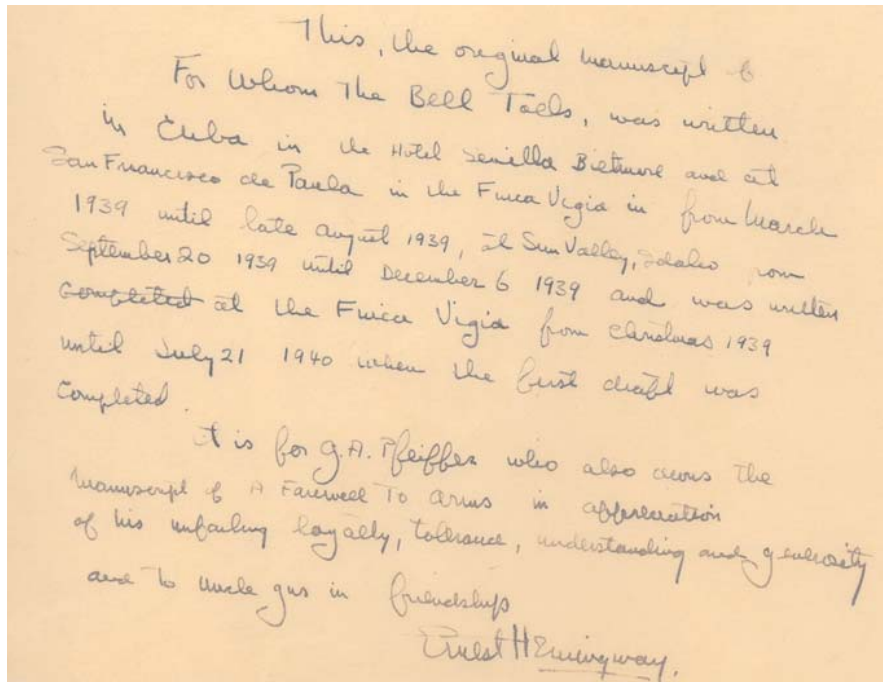 This, the original manuscript of
For Whom The Bell Tolls, was written
in Cuba in the Hotel Sevilla Biltmore and at
San Francisco de Paula in the Finca Vigia in from March
1939 until late august 1939, at Sun Valley, Idaho rom
September 20 1939 until December 6 1939 and was written
completed at the Finca Vigia from Christmas 1939
until July 21 1940 when the first draft was
completed.
it is for G.A. Pfeiffer who also owns the
manuscript of A Farewell To arms in appreciation
of his unfailing loyalty, tolerance, understanding and generosity
and to uncle gus in friendship
Ernest Hemingway.